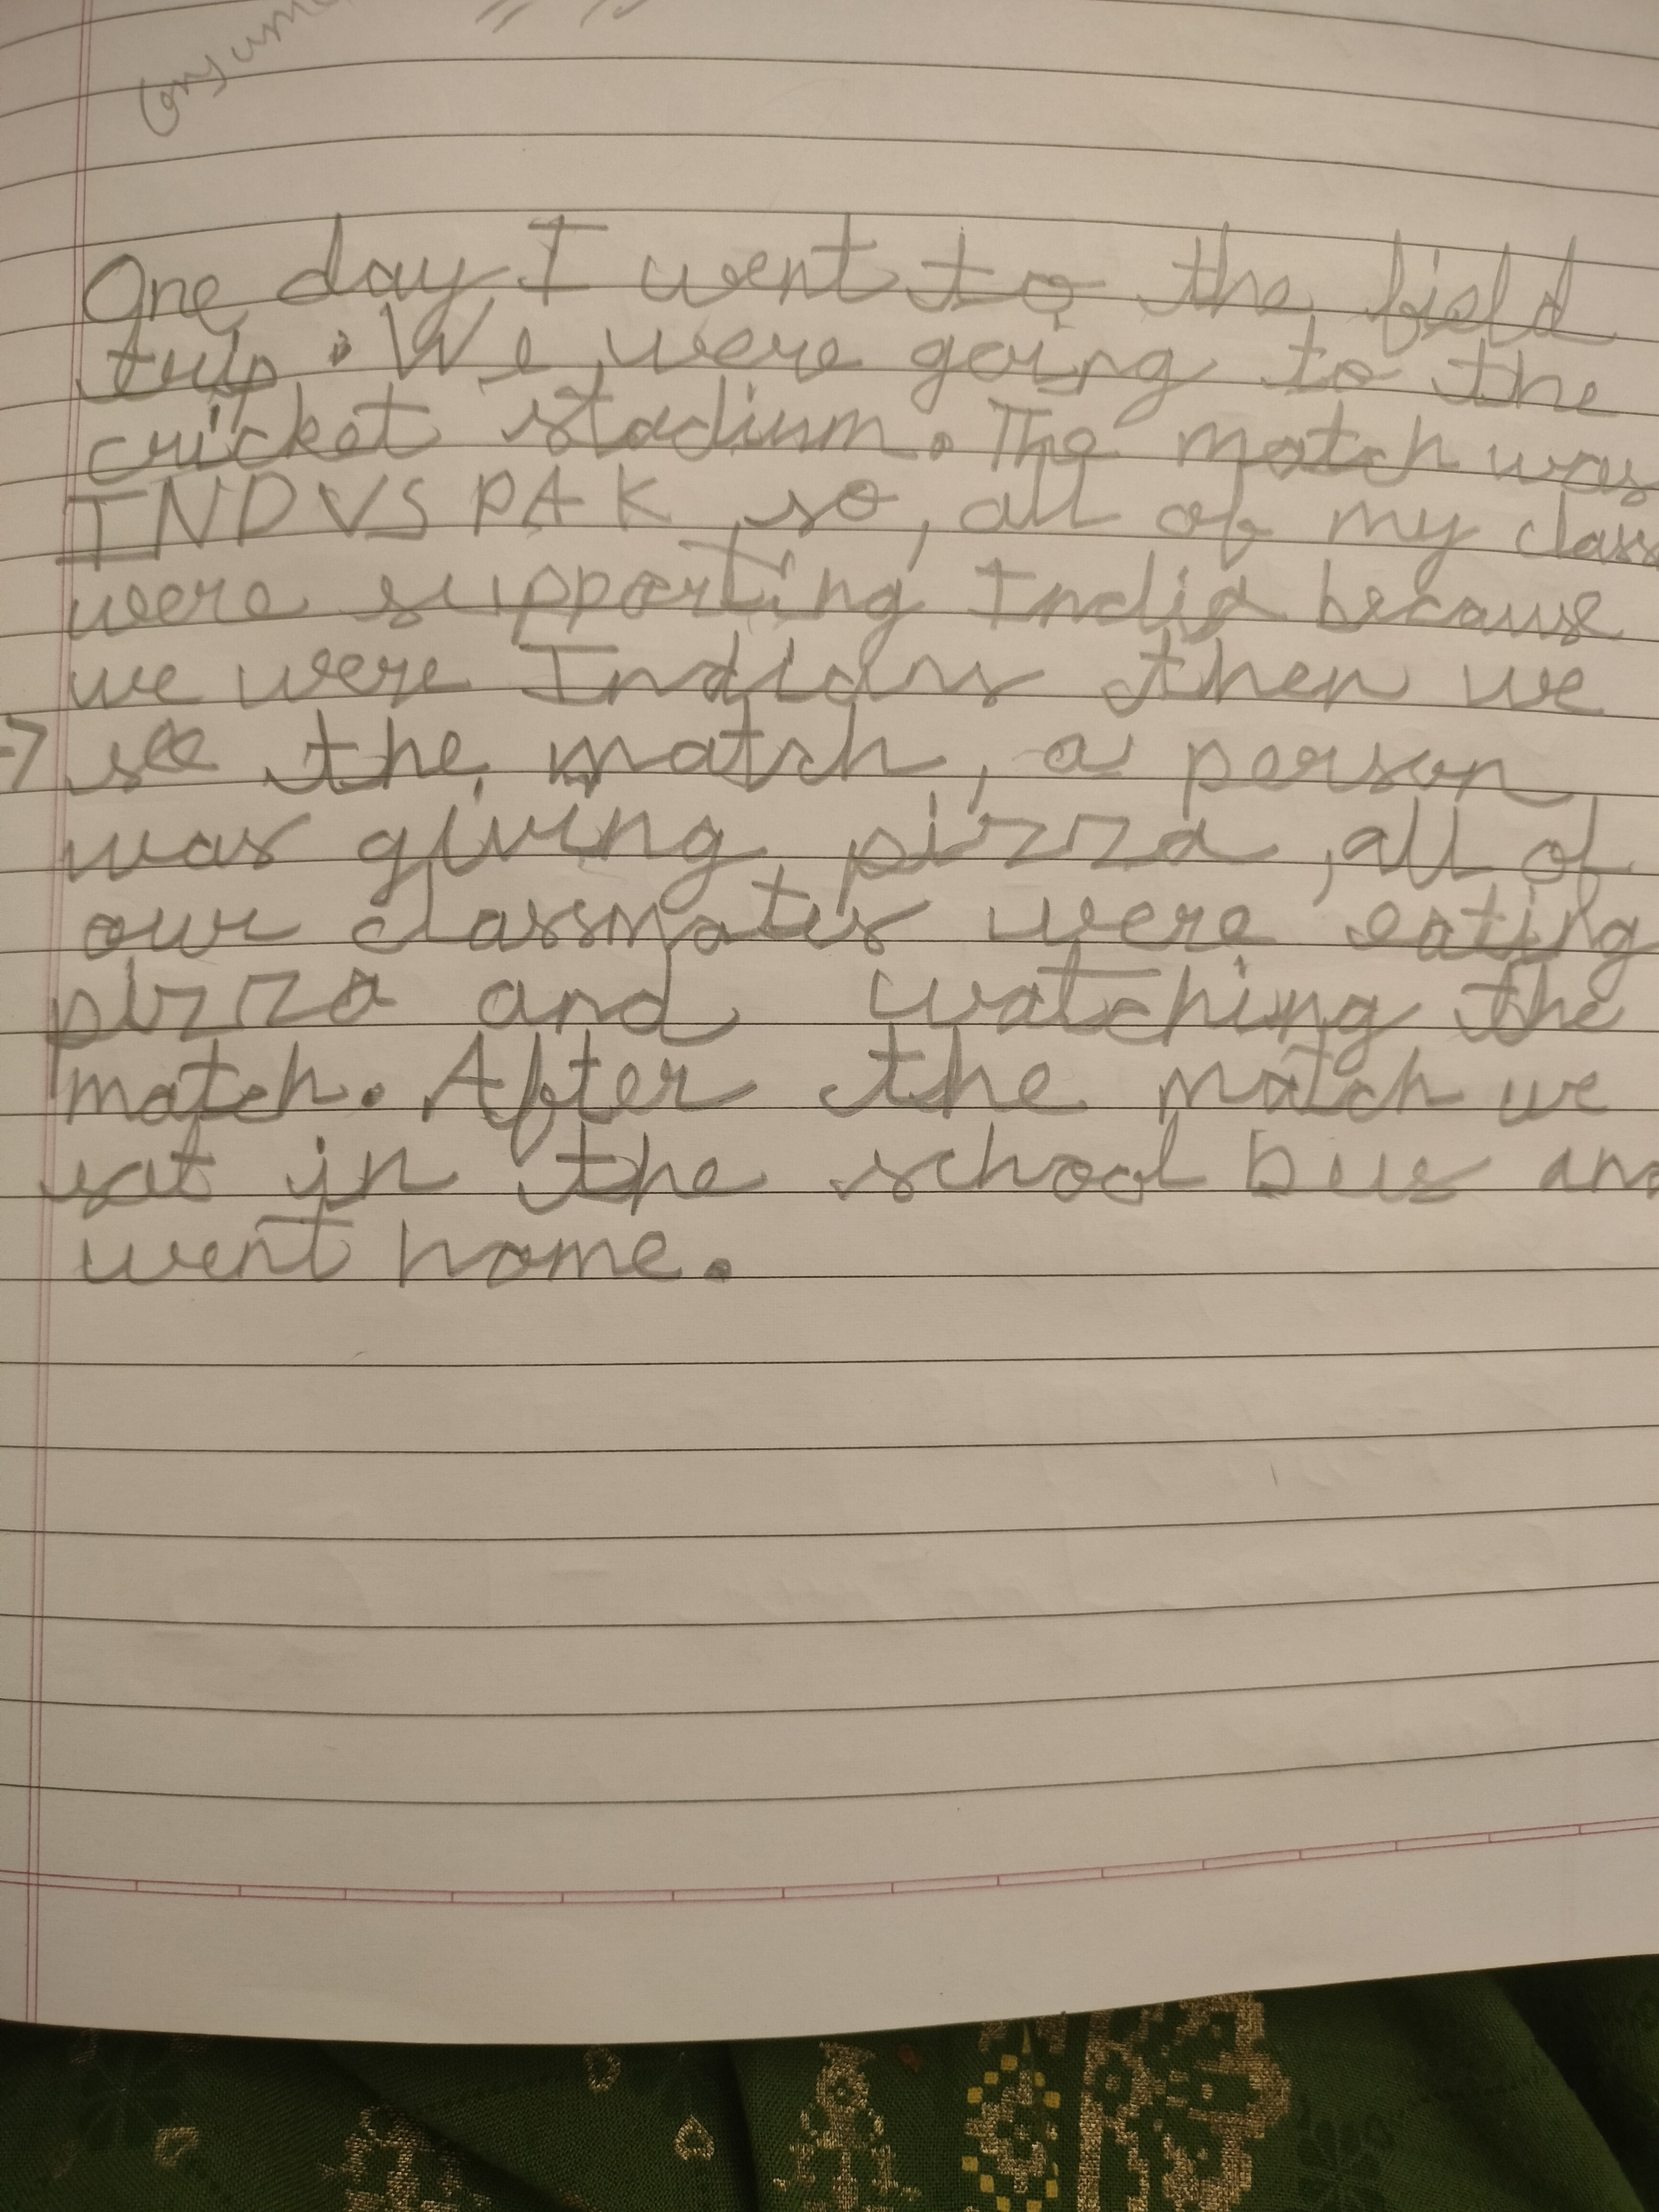 One day, I went to the field
trip. We were going to the
cricket stadium. The match was
IND VS PAK so, all of my class
were supporting India because
we were Indians then we
→ see the match, a person
was giving pizza, all of
our classmates were eating
pizza and watching the
match. After the match we
sat in the school bus and
went home.